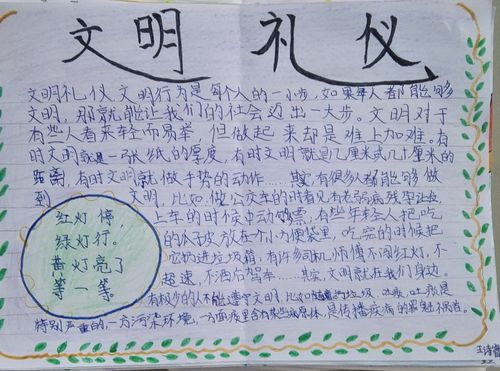 文明 礼仪
文明礼仪文明行为是每个人的一小步，如果每人都能够
文明，那就能让我们的社会迈出一大步。文明对于
有些人看来轻而易举，但做起来却是难上加难。有
时文明就是一张纸的厚度，有时文明就是几厘米或几十厘米的
距离，有时文明就做手势的动作……其实有很多人都能够做
到文明，比如，做公交车的时看见有老弱病残孕让座，
上车的时候中动
有些年轻人把吃
的瓜子皮放在个小方便袋里，吃完的时候把
它扔进垃圾箱，有许多司机师傅不闯红灯，不
超速，不酒后驾车……其实，文明就在我们身边。
有极少的人不能遵守文明，比如
垃圾，
吐痰是
特别严重的，一方污染环境，一方面痰里含有某些病原体，是传播疾病的罪魁祸首。
红灯停，
绿灯行。
黄灯亮了
等一等。